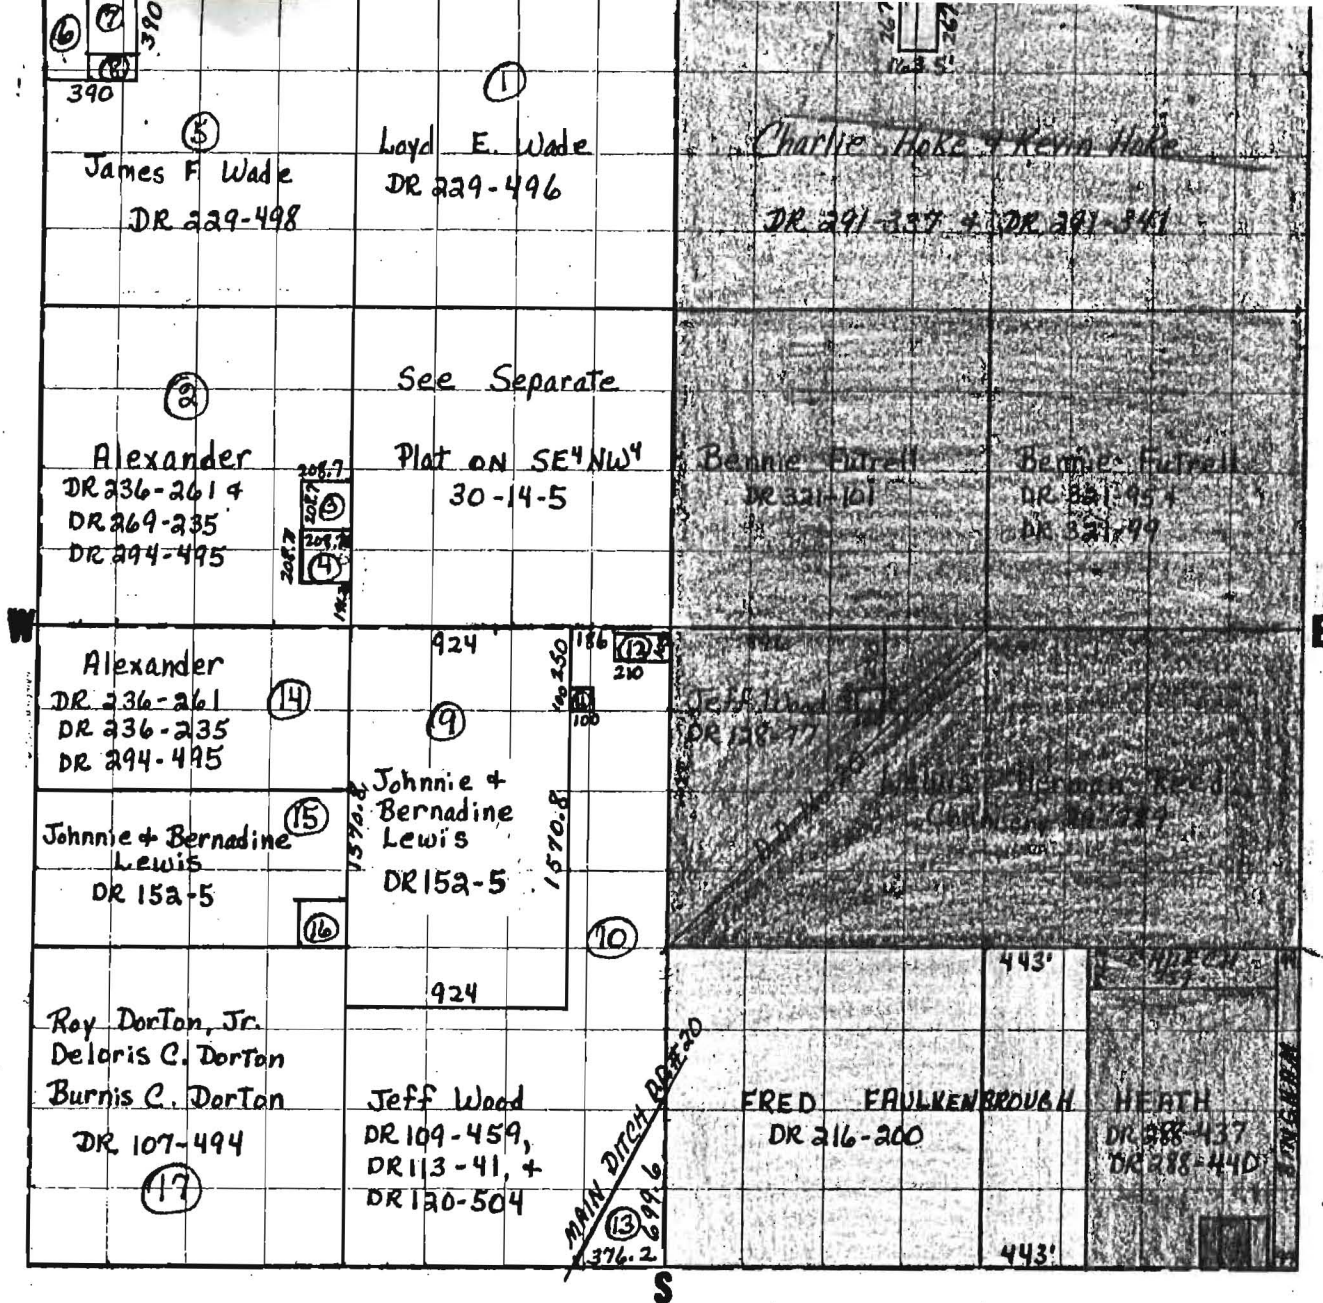 6
7
390
8
390
5
James F Wade
DR 229-498
1
Loyd E. Wade
DR 229-496
267
267
163.5'
Charlie Hoke & Kevin Hoke
DR 291-337 & DR 291-341
2
Alexander
DR 236-261 &
DR 269-235
DR 294-495
208.7
208.7
3
208.7
208.7
4
See Separate
Plat ON SE4NW4
30-14-5
Bennie Futrell
DR 321-101
Bennie Futrell
DR 321-95 &
DR 321-99
W
E
Alexander
DR 236-261
DR 236-235
DR 294-495
14
924
186
250
12
210
100
11
100
9
Johnnie &
Bernadine
Lewis
DR 152-5
1570.8
1570.8
924
Jeff Wood
DR 128-77
Herman Reed
15
Johnnie & Bernadine
Lewis
DR 152-5
16
10
Roy Dorton, Jr.
Deloris C. Dorton
Burnis C. Dorton
DR 107-494
17
Jeff Wood
DR 109-459,
DR 113-41, &
DR 120-504
MAIN DITCH DD#20
699.6
13
376.2
S
443'
FRED FAULKENBROUGH
DR 216-200
443'
HEATH
DR 288-437
DR 288-440
INGRAM